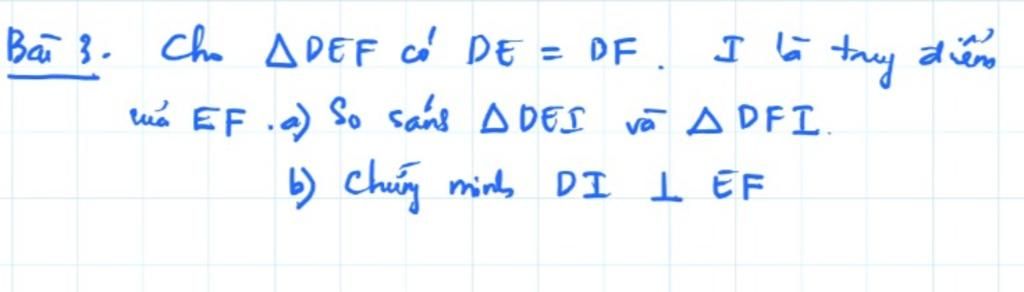 Bài 3. Cho △DEF có DE = DF. I là trung điểm
của EF. a) So sánh △DEI và △DFI.
b) Chứng minh DI ⊥ EF